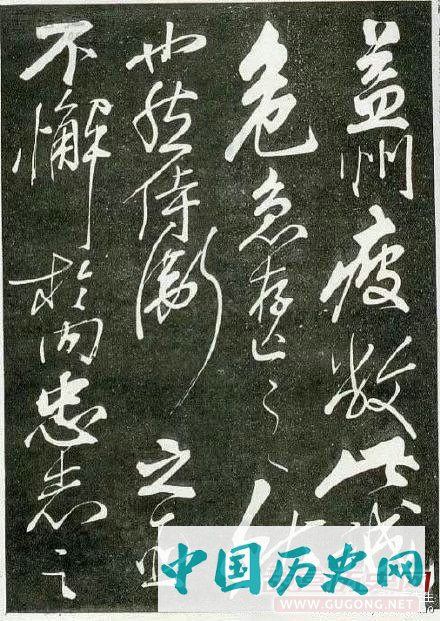 益州疲敝此誠
危急存亡之秋
也然侍衛之臣
不懈於內忠志之
中国历史网
WWW.GUGONG.NET